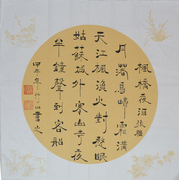 楓橋夜泊張繼
月落烏啼霜滿
天江楓漁火對愁眠
姑蘇城外寒山寺夜
半鐘聲到客船
甲午
書